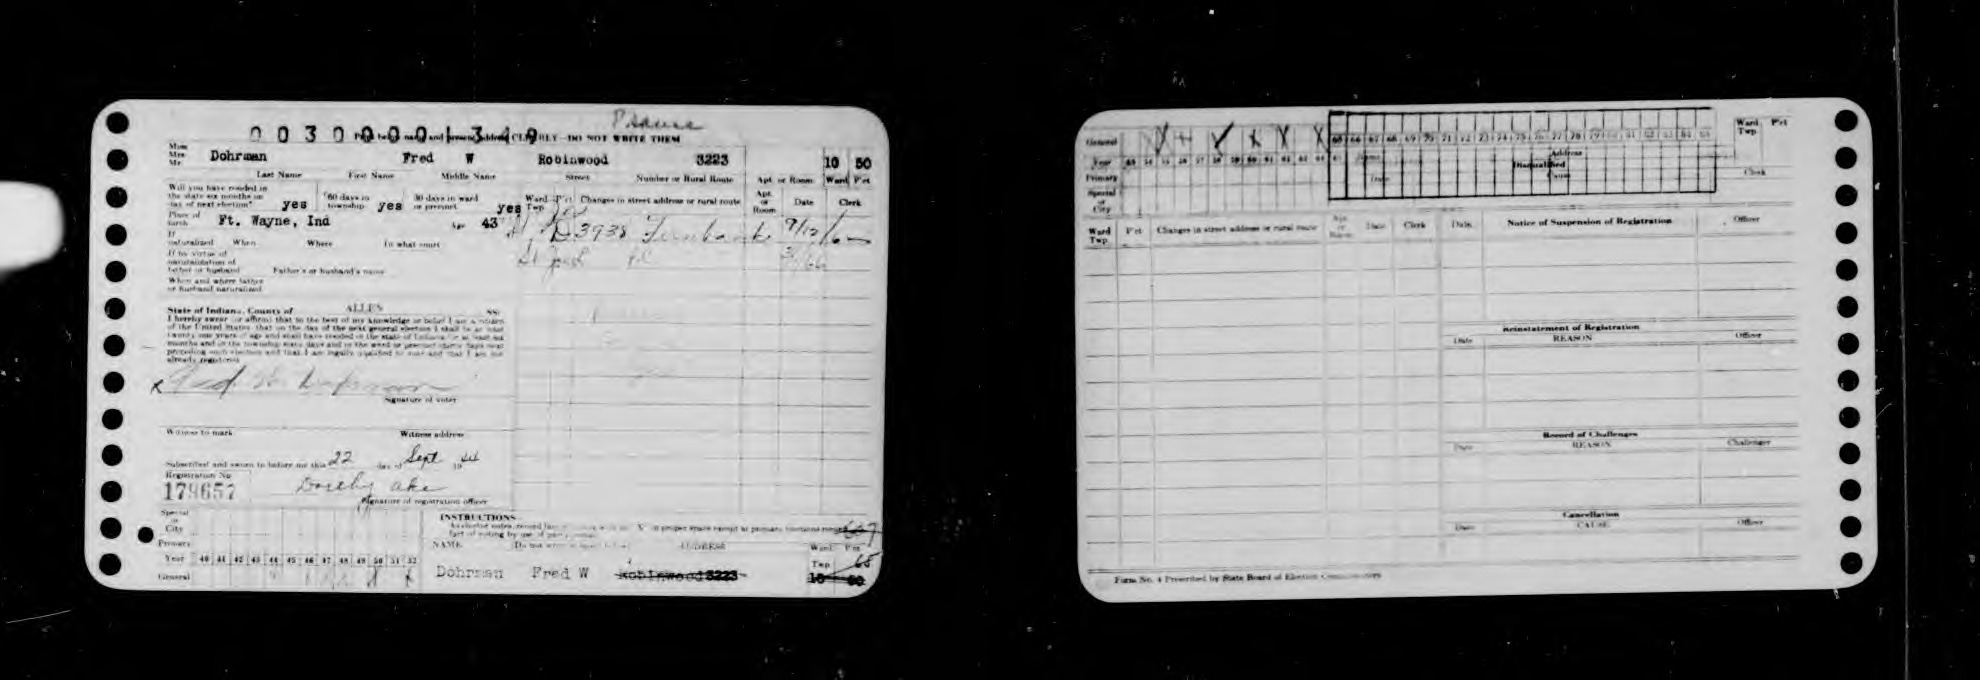 0030000 1349
Print last name and present address CLEARLY—DO NOT WRITE THEM
Miss
Mrs
Mr. Dohrman Fred W Robinwood 3223 10 50
Last Name First Name Middle Name Street Number or Rural Route Apt or Room Ward P'ct
Will you have resided in the state six months on day of next election? yes 60 days in township yes 30 days in ward or precinct yes
Ward Twp. P'ct Changes in street address or rural route Apt. or Room Date Clerk
Place of birth Ft. Wayne, Ind Age 43
3938
If naturalized When Where In what court
St Jos
If by virtue of naturalization of father or husband Father's or husband's name
When and where father or husband naturalized
State of Indiana, County of ALLEN SS:
I hereby swear (or affirm) that to the best of my knowledge or belief I am a citizen
of the United States, that on the day of the next general election I shall be at least
twenty-one years of age and shall have resided in the state of Indiana for at least six
months and in the township sixty days and in the ward or precinct thirty days next
preceding such election and that I am legally qualified to vote and that I am not
already registered
X Fred W. Dohrman
Signature of voter
Witness to mark Witness address
Subscribed and sworn to before me this 22 day of Sept 19 44
Registration No.
179657 Dorothy Ake
Signature of registration officer
Special or City
Primary
Year 40 41 42 43 44 45 46 47 48 49 50 51 52
General
INSTRUCTIONS
NAME ADDRESS Ward Twp P'ct
65
Dohrman Fred W Robinwood 3223 10 50
General
Year 53 54 55 56 57 58 59 60 61 62 63 64
Primary
Special or City
65 66 67 68 69 70 71 72 73 74 75 76 77 78 79 80 81 82 83 84 85
Name Address
Date Cause
Disqualified
Ward Twp. P'ct
Clerk
Ward Twp. P'ct Changes in street address or rural route Apt. or Room Date Clerk
Date Notice of Suspension of Registration Officer
Reinstatement of Registration
Date REASON Officer
Record of Challenges
Date REASON Challenger
Cancellation
Date CAUSE Officer
Form No. 4 Prescribed by State Board of Election Commissioners